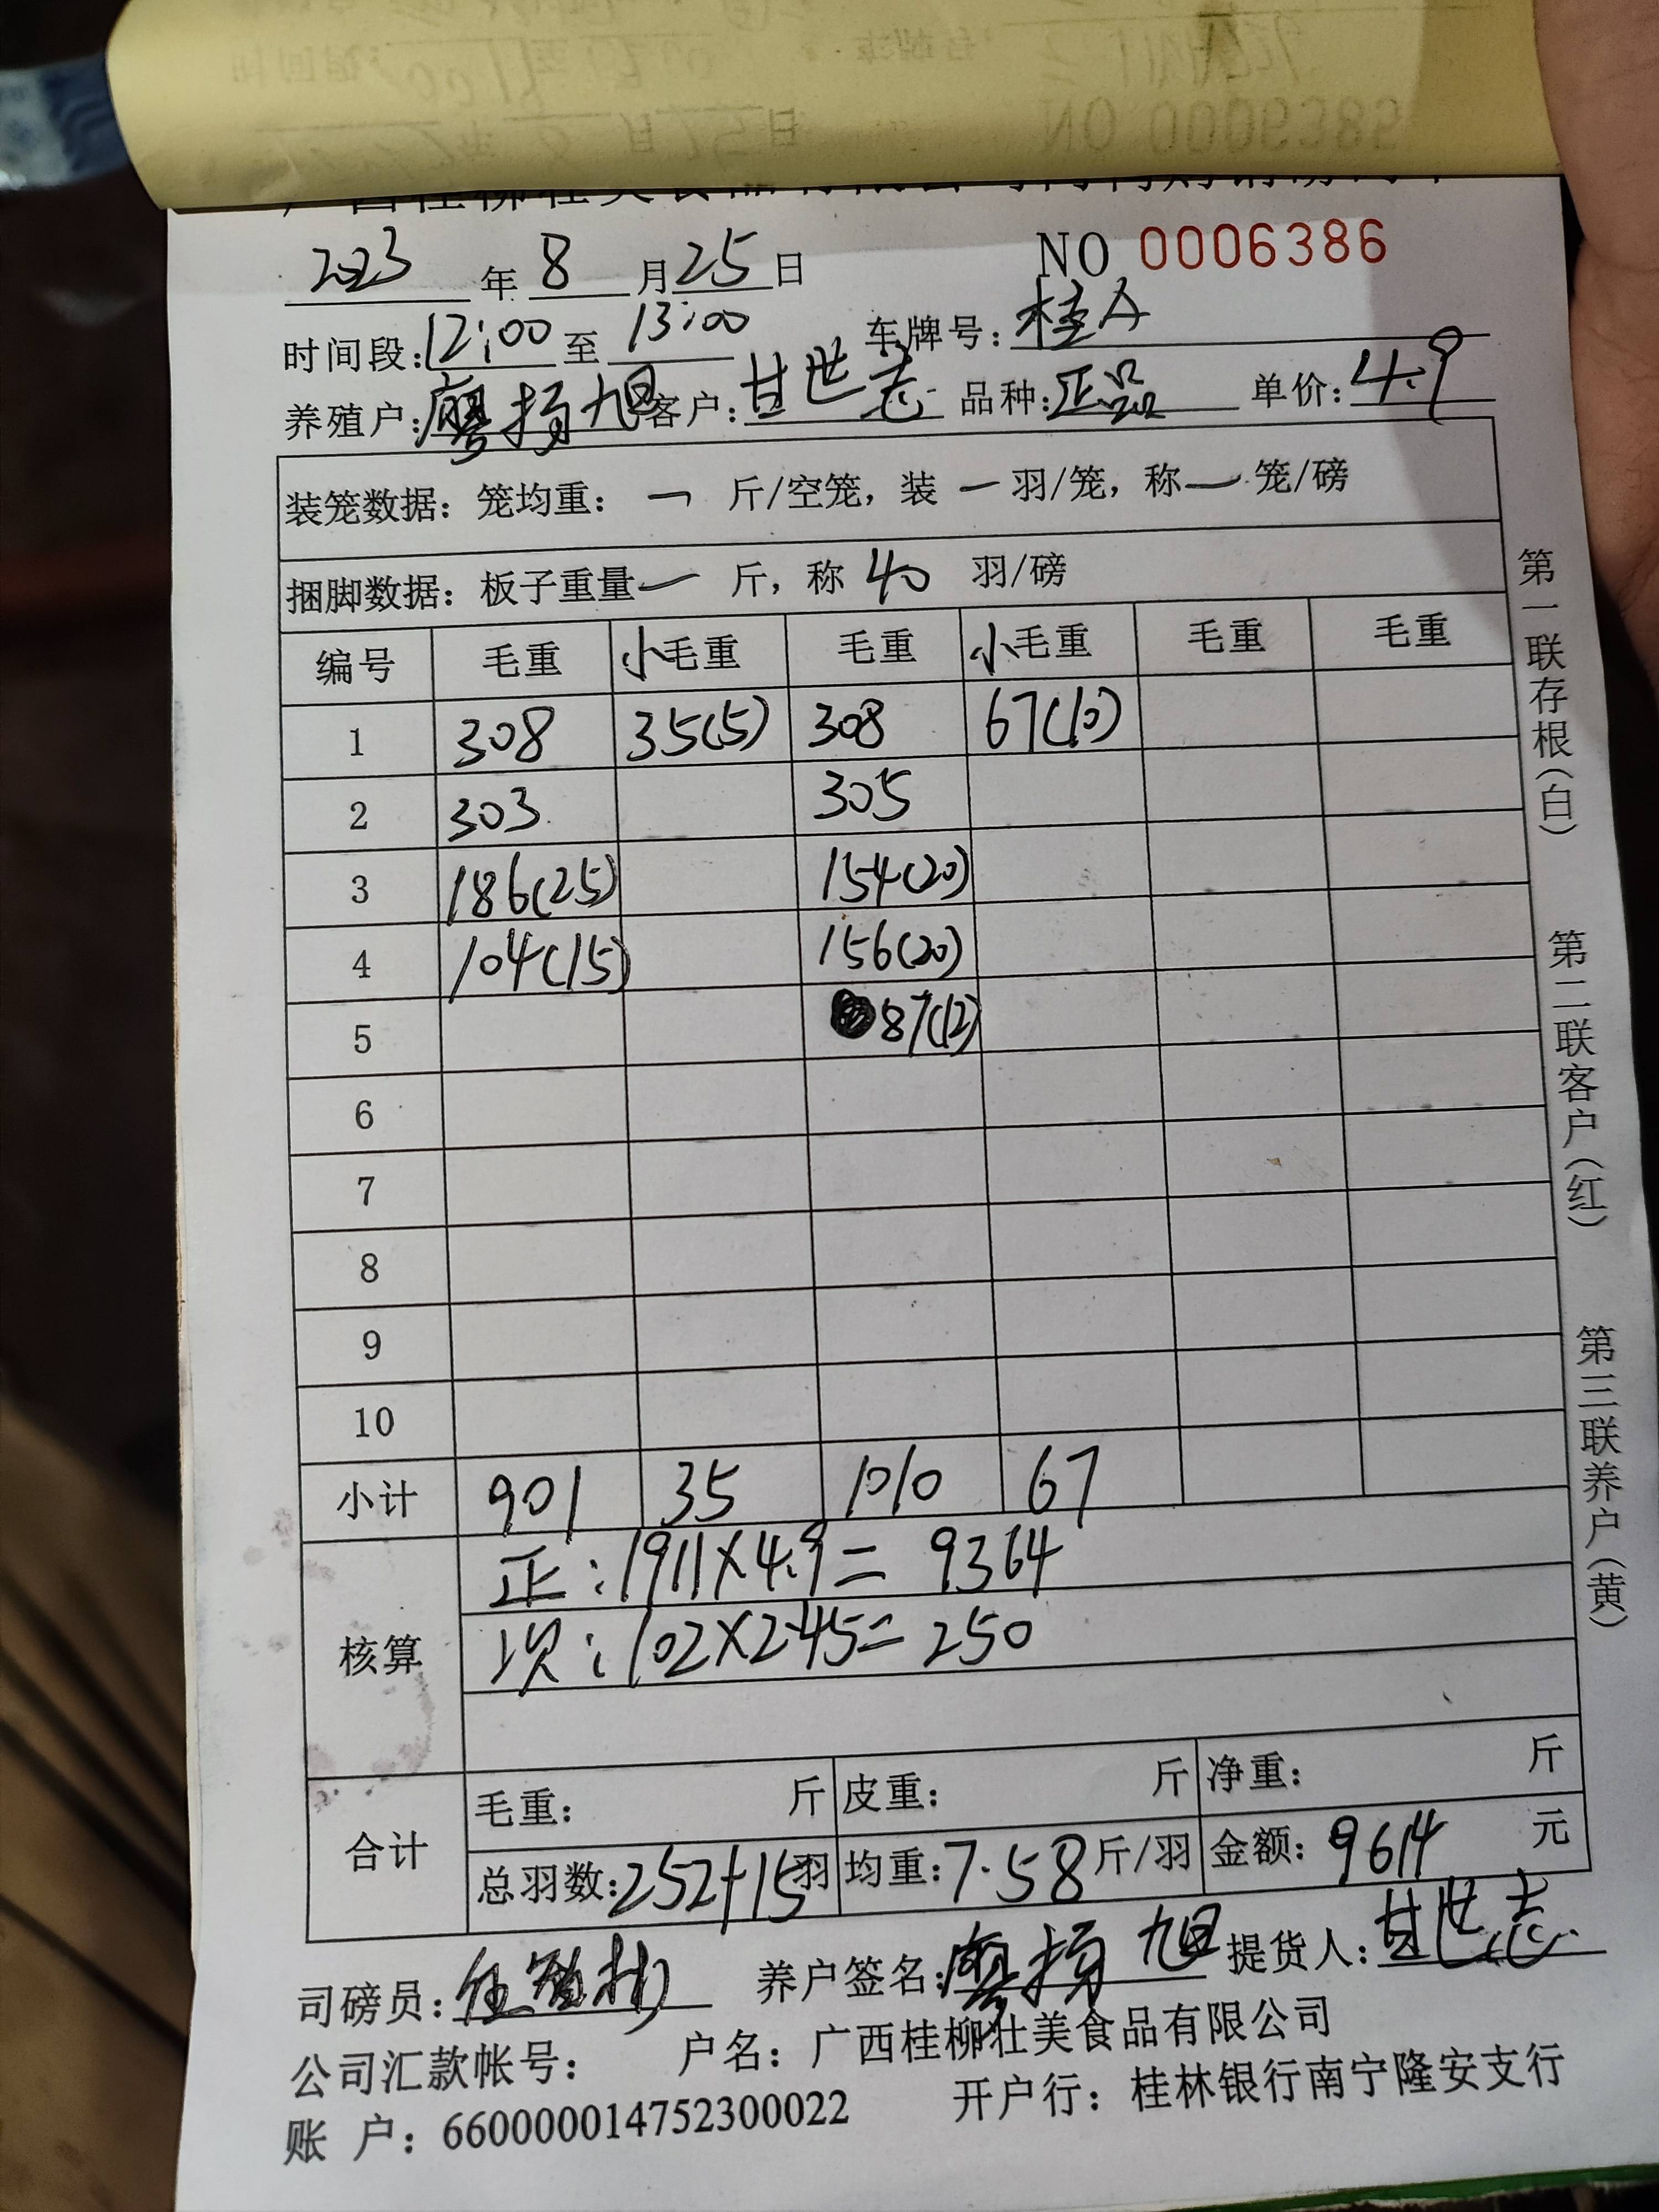 2023 年 8 月 25 日 NO 0006386
时间段: 12:00 至 13:00 车牌号: 桂A
养殖户: 廖扬旭 客户: 甘世志 品种: 正品 单价: 4.9
装笼数据: 笼均重: 一 斤/空笼, 装 一 羽/笼, 称 一 笼/磅
捆脚数据: 板子重量 一 斤, 称 40 羽/磅
编号 毛重 小毛重 毛重 小毛重 毛重 毛重
1 308 35(5) 308 67(10)
2 303 305
3 186(25) 154(20)
4 104(15) 156(20)
5 87(12)
6
7
8
9
10
小计 901 35 1010 67
核算
正: 1911×4.9= 9364
次: 102×2.45= 250
合计
毛重: 斤 皮重: 斤 净重: 斤
总羽数: 252+15 羽 均重: 7.58 斤/羽 金额: 9614 元
司磅员: 养户签名: 廖扬旭 提货人: 甘世志
公司汇款帐号: 户名: 广西桂柳壮美食品有限公司
账 户: 660000014752300022 开户行: 桂林银行南宁隆安支行
第一联存根(白)
第二联客户(红)
第三联养户(黄)